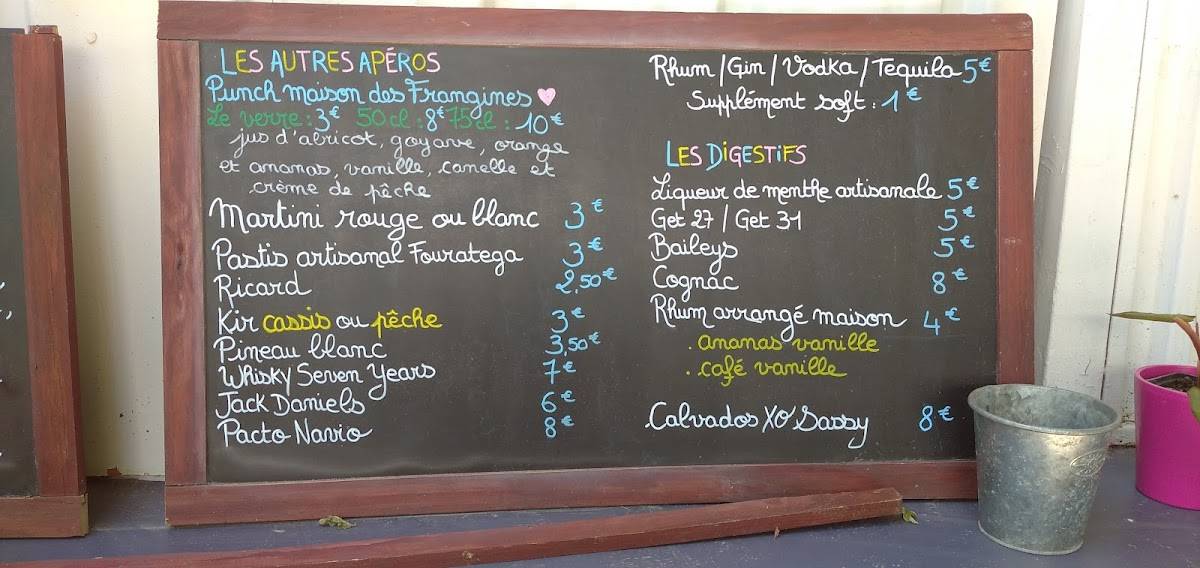 LES AUTRES APÉROS
Punch maison des Frangines
Le verre : 3€ 50 cl : 8€ 75 cl : 10€
jus d'abricot, goyave, orange
et ananas, vanille, canelle et
crème de pêche
Martini rouge ou blanc 3€
Pastis artisanal Fouratega 3€
Ricard 2,50€
Kir cassis ou pêche 3€
Pineau blanc 3,50€
Whisky Seven Years 7€
Jack Daniels 6€
Pacto Navio 8€
Rhum / Gin / Vodka / Tequila 5€
Supplément soft : 1€
LES DIGESTIFS
Liqueur de menthe artisanale 5€
Get 27 / Get 31 5€
Baileys 5€
Cognac 8€
Rhum arrangé maison 4€
. ananas vanille
. café vanille
Calvados XO Sassy 8€